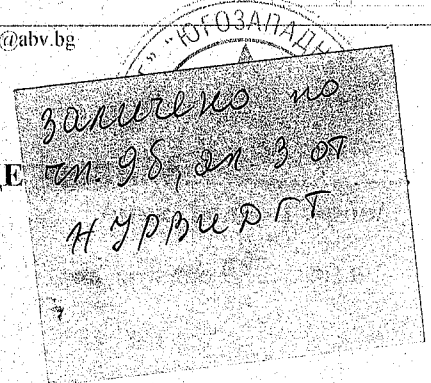 @abv.bg
"ЮГОЗАПАДН
Е
заличено по
чл. 9б, ал 3 от
НУРВИДГТ